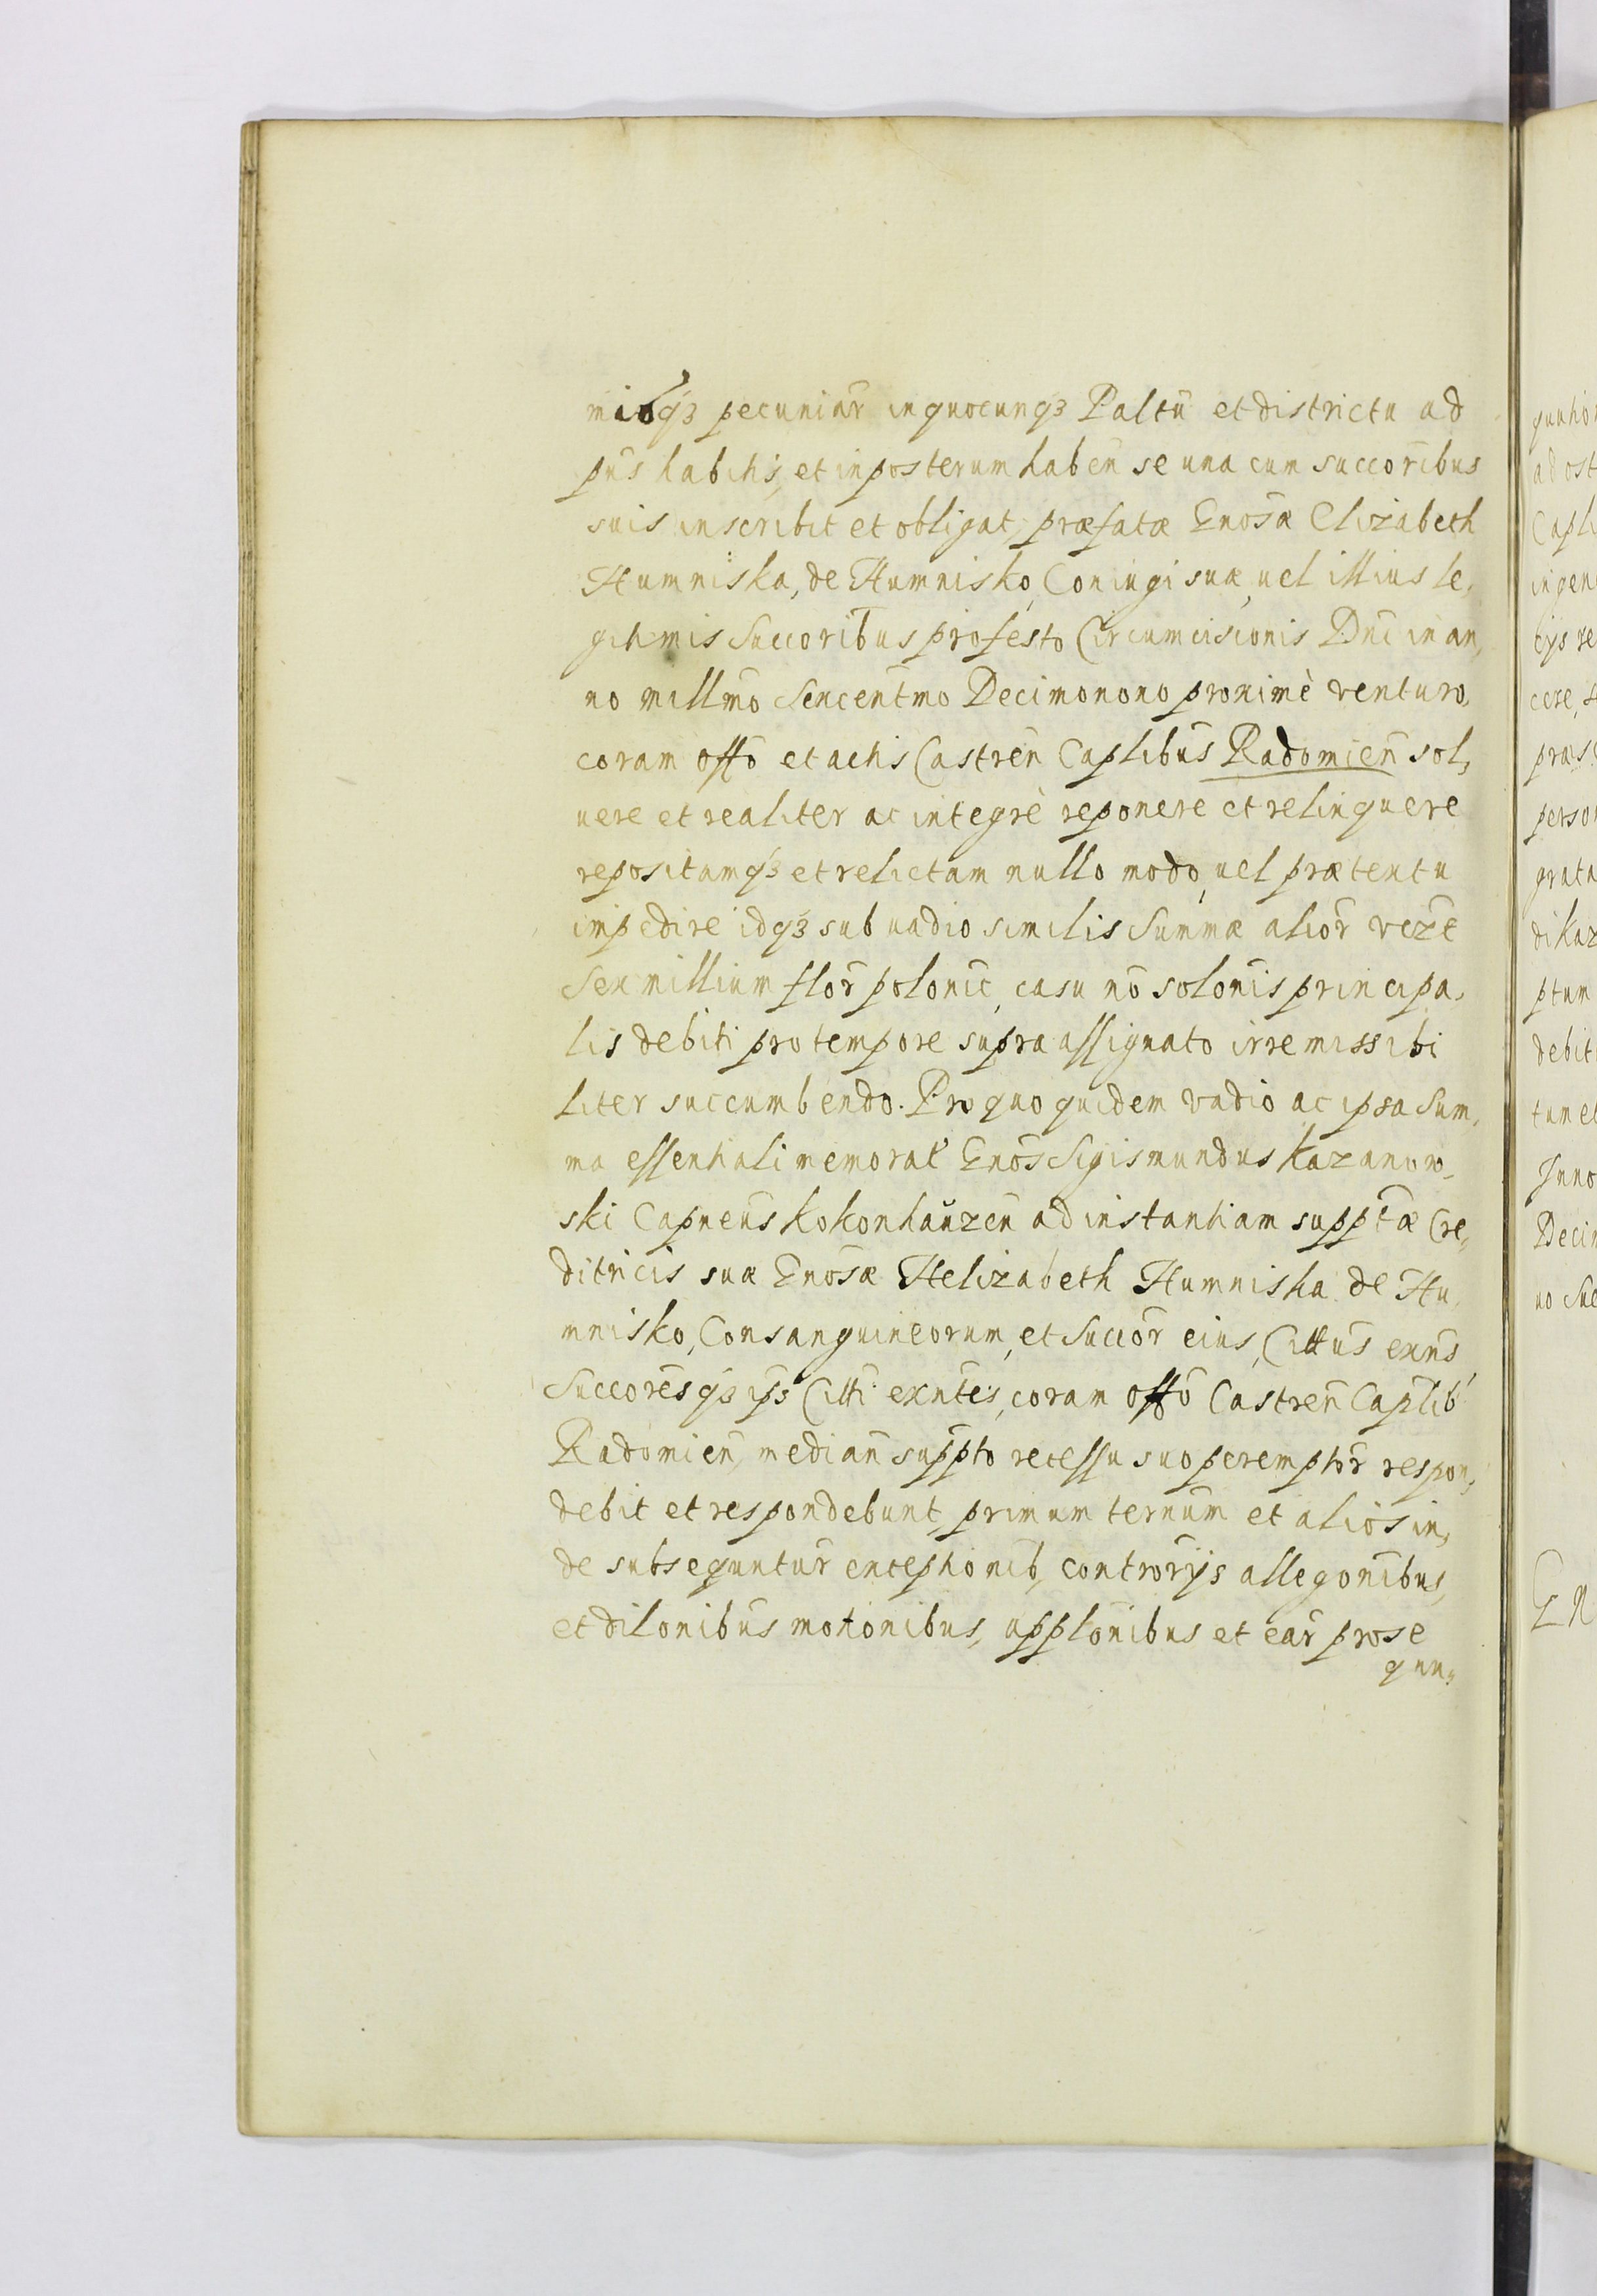 miбqꝫ pecuniar̃ in quocunqꝫ Paltũ et districtu ad
pñs habitis, et in posterum haben̄ se una cum succor̃ibus
suis inscribit et obligat, præfatæ Gnos̄æ Elizabeth
Humniska, de Humnisko, Coniugi suæ, uel illius le,
gitimis Succorib̄us pro festo Circumcisionis Dñi in an,
no millm̄o Sexcentm̄o Decimonono proximè venturo,
coram off̄o et actis Castren̄ Caplib̄us Radomien̄ sol,
uere et realiter ac integrè reponere et relinquere
repositamqꝫ et relictam nullo modo, uel prætextu
impedire idqꝫ sub uadio similis Summæ alior̄ veze
Sex millium flor̄ polonic̄, casu nō solōnis principa,
lis debiti pro tempore supra assignato irremissibi
liter succumbendo. Pro quo quidem vadio ac ipsa Sum,
ma essentiali memorat̃ Gnos̄ Sigismundus Kazanow,
ski Capneūs Kokonhaŭzen̄ ad instantiam supptæ Cre,
ditricis suæ Gnos̄æ Helizabeth Humniska de Hu,
mnisko, Consanguineorum, et Succor̄ eius, Citt̄us exn̄s
Succores̄qꝫ ipꝫ Citti exntēs, coram off̄o Castren̄ Caplib̄
Radomien̄, median̄ suppto recessu suo peremptor̄ respon,
debit et respondebunt, primum ternūm et aliōs in,
de subsequntur̄ exceptionib, controrijs allegon̄ibus,
et dilonib̄us motōnibus, applōnibus et ear̄ prose
quu,